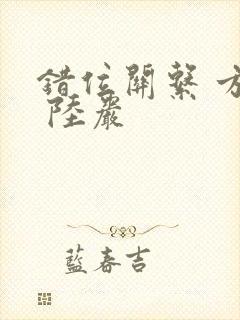 錯位關系 方
陸嚴
藍春吉